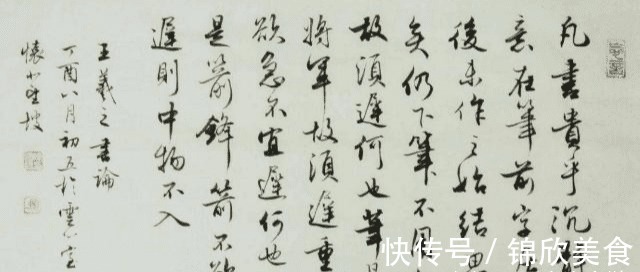 凡書貴乎沉
意在筆前字
後未作之始結思
矣仍下筆不用
故須遲何也筆是
將軍故須遲重
欲急不宜遲何也
是箭鋒箭不欲
遲則中物不入
王羲之書論
丁酉八月初五於雲室
快传号 / 锦欣美食